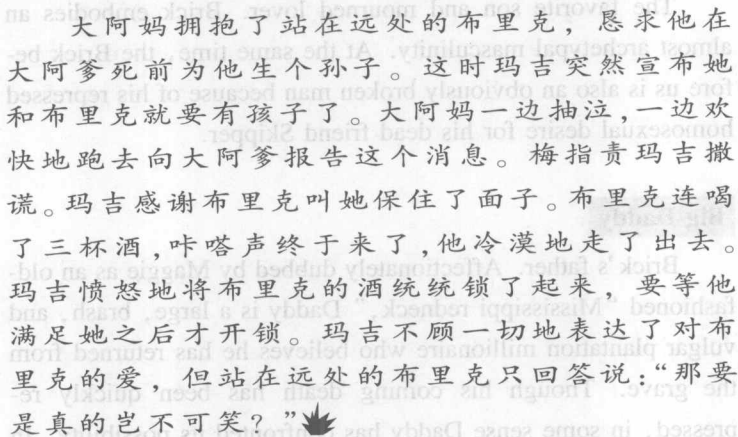 大阿妈拥抱了站在远处的布里克，恳求他在
大阿爹死前为他生个孙子。这时玛吉突然宣布她
和布里克就要有孩子了。大阿妈一边抽泣，一边欢
快地跑去向大阿爹报告这个消息。梅指责玛吉撒
谎。玛吉感谢布里克叫她保住了面子。布里克连喝
了三杯酒，咔嗒声终于来了，他冷漠地走了出去。
玛吉愤怒地将布里克的酒统统锁了起来，要等他
满足她之后才开锁。玛吉不顾一切地表达了对布
里克的爱，但站在远处的布里克只回答说：“那要
是真的岂不可笑？”